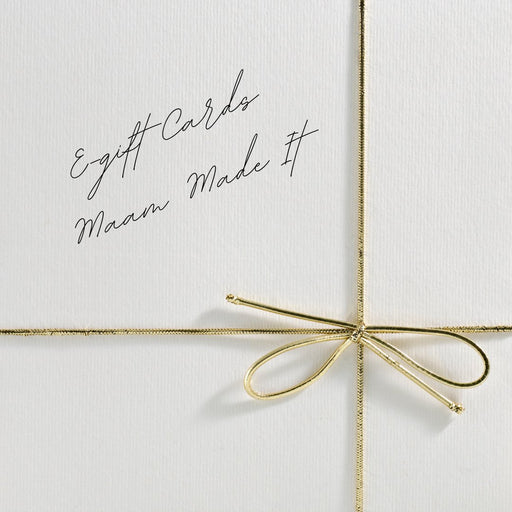 E-gift Cards
Maam Made It